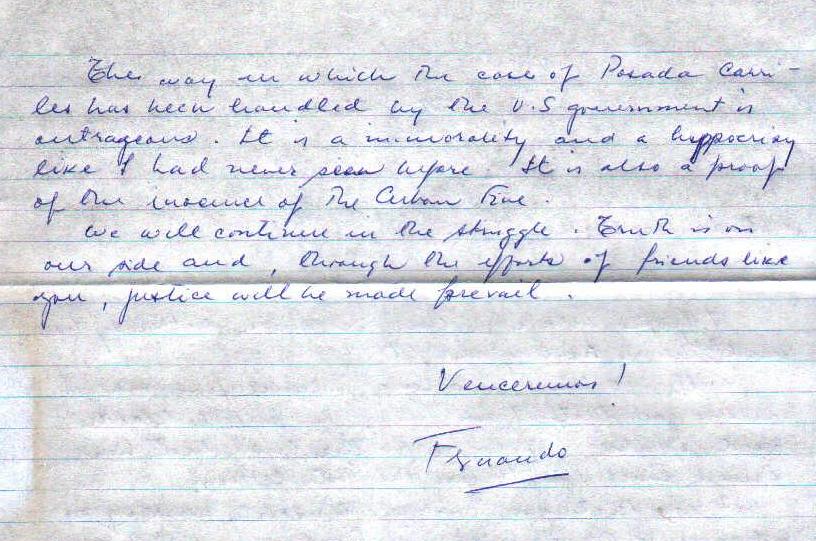 The way in which the case of Posada Carri-
les has been handled by the U.S government is
outrageous. It is a immorality and a hyppocrisy
like I had never seen before. It is also a proof
of the inocence of The Cuban Five.
We will continue in the struggle. Truth is on
our side and, through the efforts of friends like
you, justice will be made prevail.
Venceremos!
Fernando